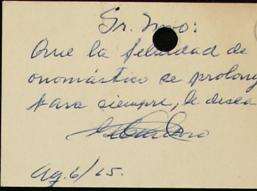 Sr. Novo:
Que la felicidad de
onomástico se prolong
para siempre, le desea
Ag. 6/65.